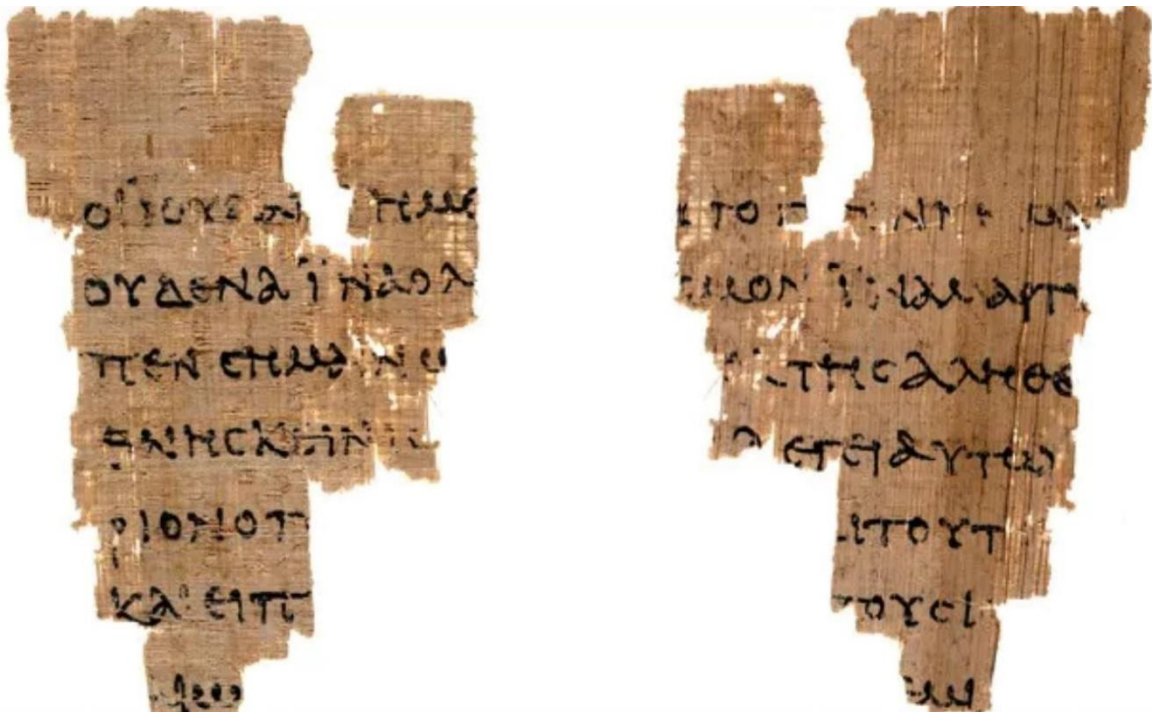 ΟΙ ΙΟΥΔΑΙ ΗΜΕ
ΟΥΔΕΝΑ ΪΝΑ Ο Λ
ΠΕΝ ϹΗΜΑΙΝΩ
ΘΝΗϹΚΕΙΝ ΙϹ
ΡΙΟΝ Ο Π
ΚΑΙ ΕΙΠ
ΑΙΩ
ΤΟ Γ
ϹΜΟΝ ΪΝΑ ΜΑΡΤΥ
ΤΗϹ ΑΛΗΘΕ
ΛΕΓΕΙ ΑΥΤΩ
ΑΙ ΤΟΥΤ
ΤΟΥϹ Ι
ΜΙ